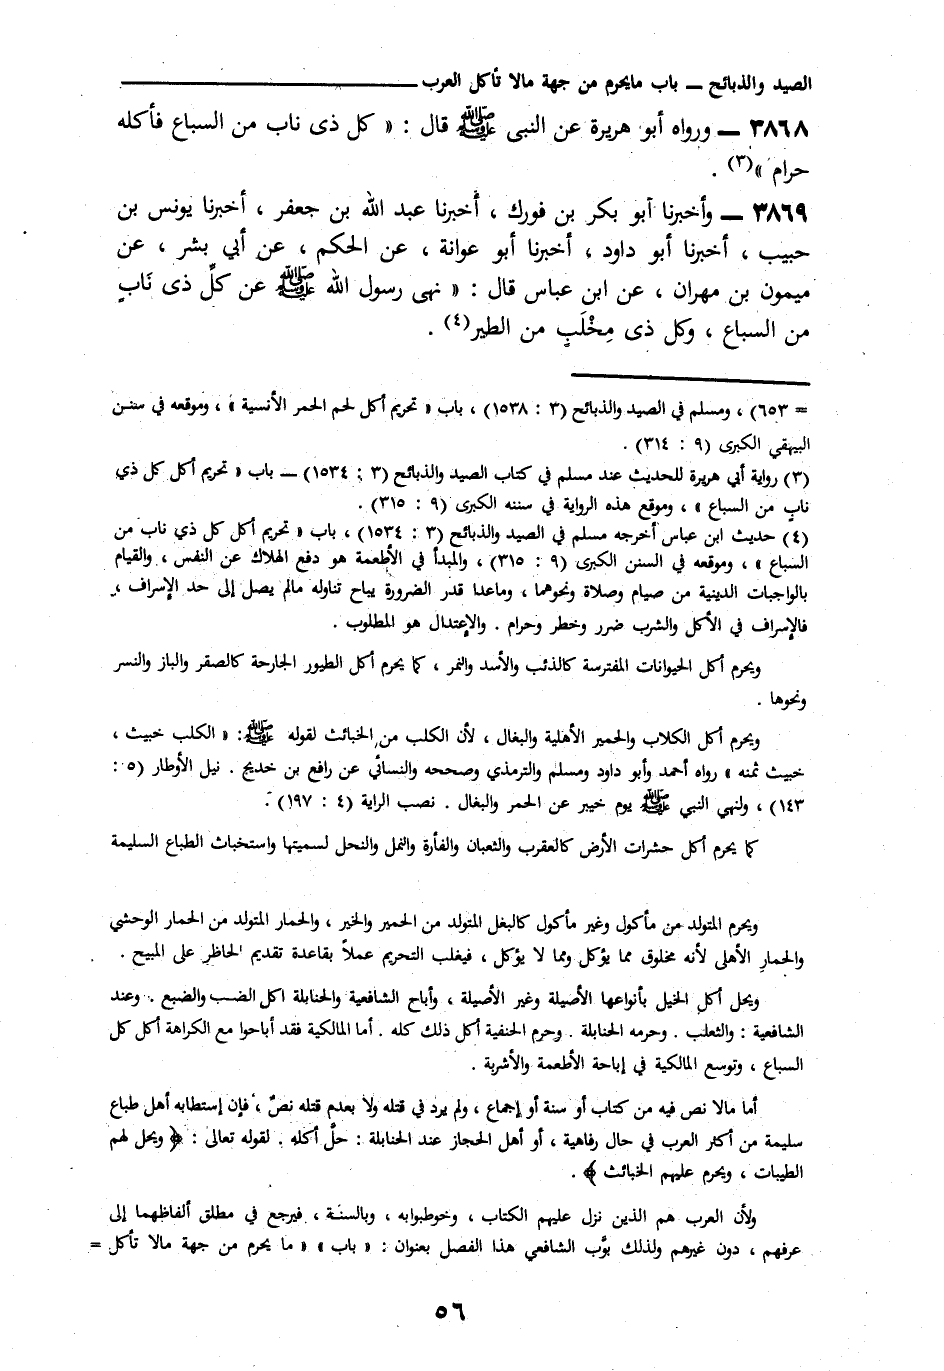 الصيد والذبائح ـــ باب مايحرم من جهة مالا تأكل العرب
٣٨٦٨ ـــ ورواه أبو هريرة عن النبى ﷺ قال : « كل ذى ناب من السباع فأكله
حرام »(٣) .
٣٨٦٩ ـــ وأخبرنا أبو بكر بن فورك ، أخبرنا عبد الله بن جعفر ، أخبرنا يونس بن
حبيب ، أخبرنا أبو داود ، أخبرنا أبو عوانة ، عن الحكم ، عن أبي بشر ، عن
ميمون بن مهران ، عن ابن عباس قال : « نهى رسول الله ﷺ عن كلِّ ذى نَابٍ
من السباع ، وكل ذى مِخْلَبٍ من الطير(٤) .
= ٦٥٣) ، ومسلم في الصيد والذبائح (٣ : ١٥٣٨) ، باب « تحريم أكل لحم الحمر الأنسية » ، وموقعه في سنن
البيهقي الكبرى (٩ : ٣١٤) .
(٣) رواية أبي هريرة للحديث عند مسلم في كتاب الصيد والذبائح (٣ : ١٥٣٤) ـــ باب « تحريم أكل كل ذي
ناب من السباع » ، وموقع هذه الرواية في سننه الكبرى (٩ : ٣١٥) .
(٤) حديث ابن عباس أخرجه مسلم في الصيد والذبائح (٣ : ١٥٣٤) ، باب « تحريم أكل كل ذي ناب من
السباع » ، وموقعه في السنن الكبرى (٩ : ٣١٥) ، والمبدأ في الأطعمة هو دفع الهلاك عن النفس ، والقيام
بالواجبات الدينية من صيام وصلاة ونحوهما ، وماعدا قدر الضرورة يباح تناوله مالم يصل إلى حد الإسراف ،
فالإسراف في الأكل والشرب ضرر وخطر وحرام . والإعتدال هو المطلوب .
ويحرم أكل الحيوانات المفترسة كالذئب والأسد والنمر ، كما يحرم أكل الطيور الجارحة كالصقر والباز والنسر
ونحوها .
ويحرم أكل الكلاب والحمير الأهلية والبغال ، لأن الكلب من الخبائث لقوله ﷺ : « الكلب خبيث ،
خبيث ثمنه » رواه أحمد وأبو داود ومسلم والترمذي وصححه والنسائي عن رافع بن خديج . نيل الأوطار (٥ :
١٤٣) ، ولنهي النبي ﷺ يوم خيبر عن الحمر والبغال . نصب الراية (٤ : ١٩٧) .
كما يحرم أكل حشرات الأرض كالعقرب والثعبان والفأرة والنمل والنحل لسميتها واستخباث الطباع السليمة
ويحرم المتولد من مأكول وغير مأكول كالبغل المتولد من الحمير والخير ، والحمار المتولد من الحمار الوحشي
والحمار الأهلى لأنه مخلوق مما يؤكل ومما لا يؤكل ، فيغلب التحريم عملاً بقاعدة تقديم الحاظر على المبيح .
ويحل أكل الخيل بأنواعها الأصيلة وغير الأصيلة ، وأباح الشافعية والحنابلة اكل الضب والضبع . وعند
الشافعية : والثعلب . وحرمه الحنابلة . وحرم الحنفية أكل ذلك كله . أما المالكية فقد أباحوا مع الكراهة أكل كل
السباع ، وتوسع المالكية في إباحة الأطعمة والأشربة .
أما مالا نص فيه من كتاب أو سنة أو إجماع ، ولم يرد في قتله ولا بعدم قتله نصٌ ، فإن إستطابه أهل طباع
سليمة من أكثر العرب في حال رفاهية ، أو أهل الحجاز عند الحنابلة : حلَّ أكله . لقوله تعالى : ﴿ ويحل لهم
الطيبات ، ويحرم عليهم الخبائث ﴾ .
ولأن العرب هم الذين نزل عليهم الكتاب ، وخوطبوابه ، وبالسنة ، فيرجع في مطلق ألفاظهما إلى
عرفهم ، دون غيرهم ولذلك بوَّب الشافعي هذا الفصل بعنوان : « باب » « ما يحرم من جهة مالا تأكل =
٥٦